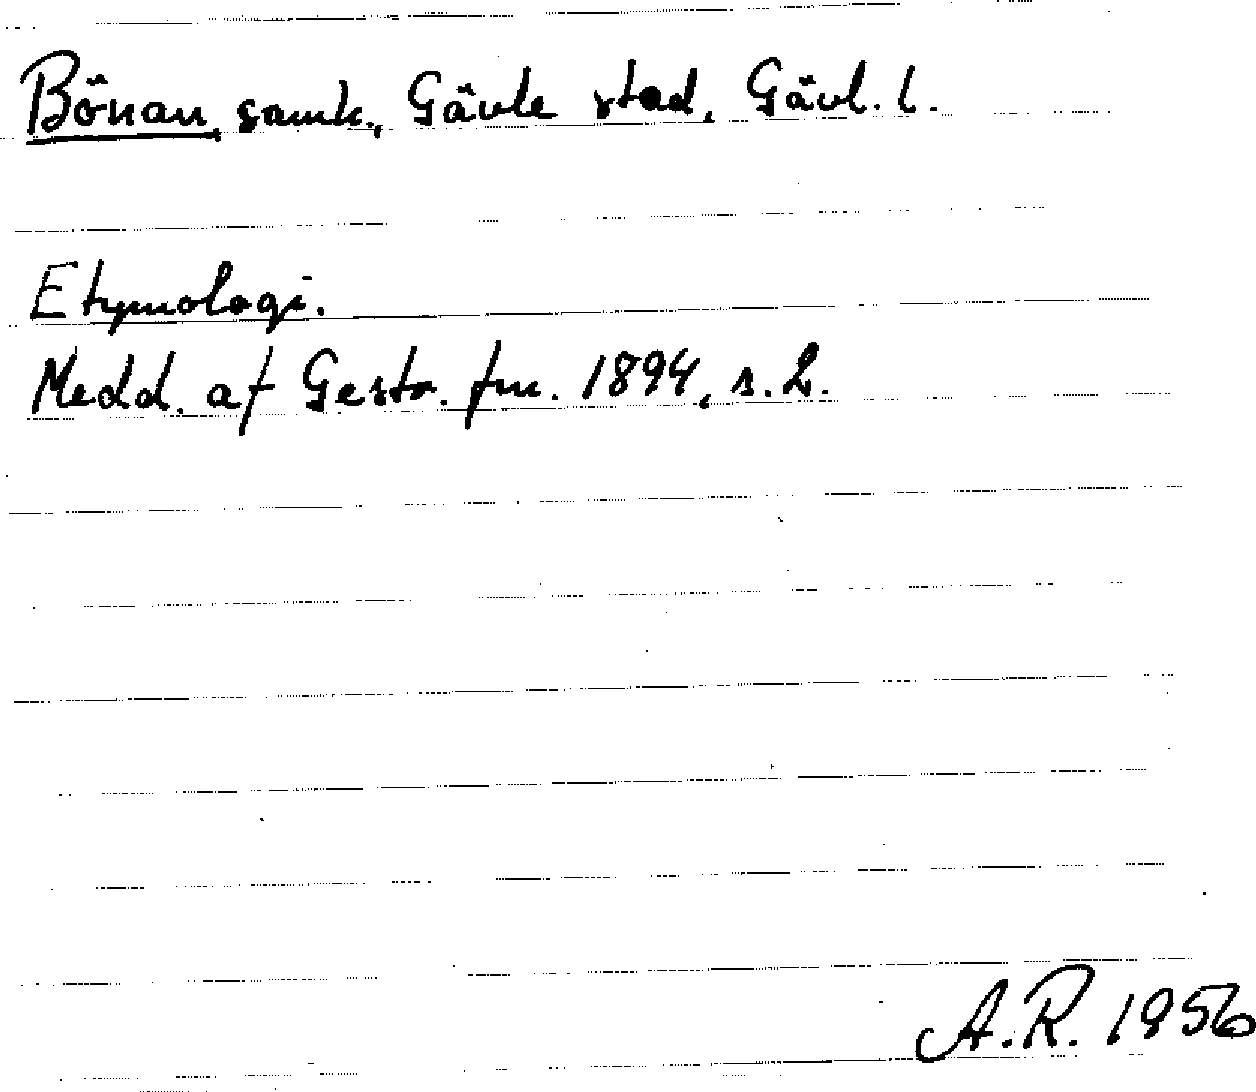 Bönan, samh., Gävle stad, Gävl. l.
Etymologi.
Medd. af Gestr. fmf. 1894, s. 2.
A.R. 1956